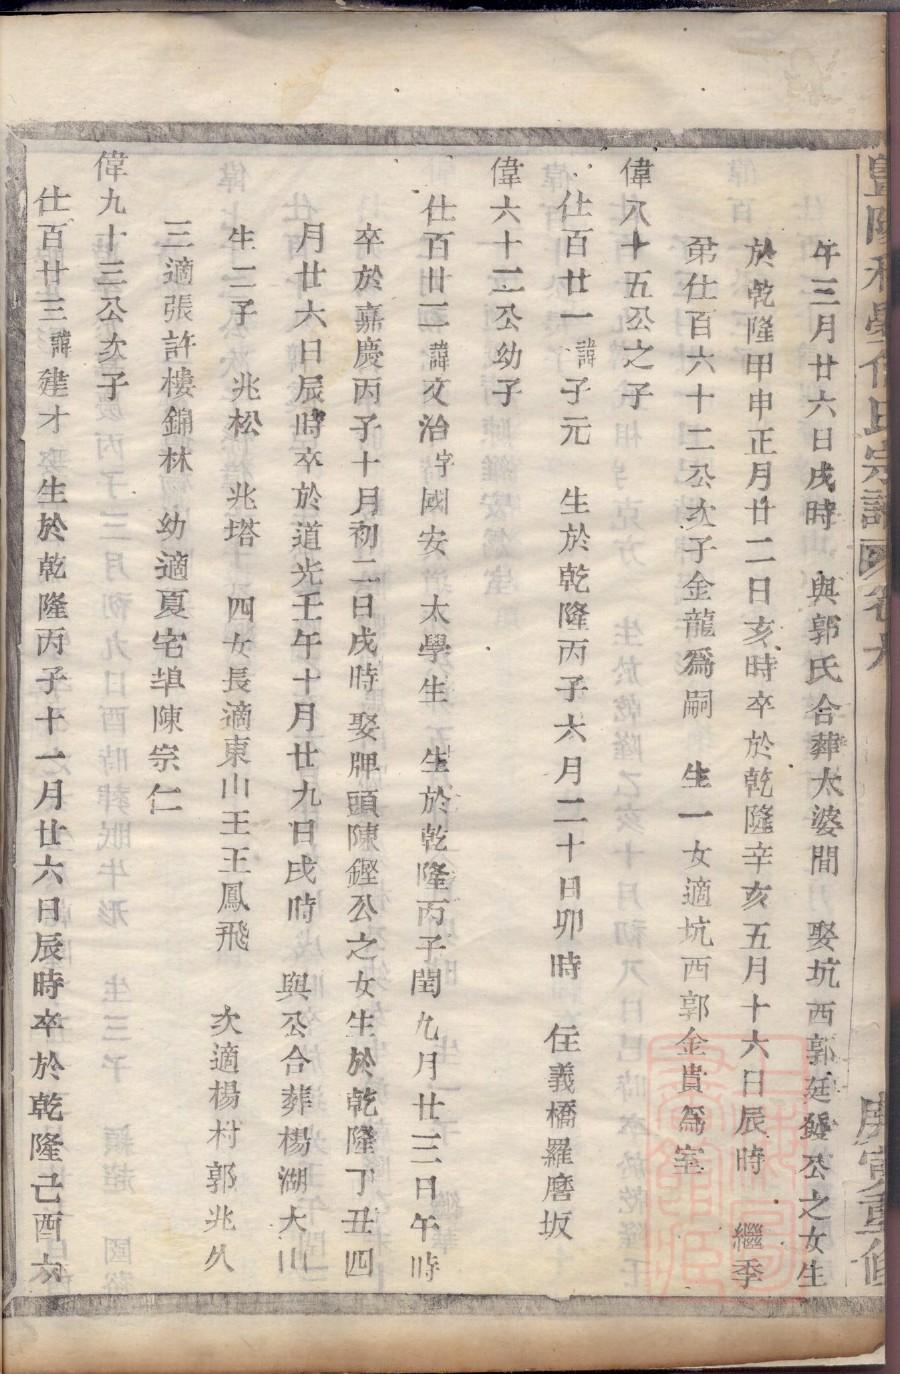 豐陵和壘何氏宗譜 卷九 庚寅重修
午三月廿六日戌時 與郭氏合葬太婆間 娶坑西郭廷發公之女生
於乾隆甲申正月廿二日亥時卒於乾隆辛亥五月十六日辰時 繼季
弟仕百六十二公次子金龍爲嗣 生一女適坑西郭金貴爲室
偉八十五公之子
仕百廿一諱子元 生於乾隆丙子六月二十日卯時 住義橋羅磨坂
偉六十二公幼子
仕百廿二諱文治字國安 太學生 生於乾隆丙子閏九月廿三日午時
卒於嘉慶丙子十月初二日戌時娶牌頭陳鏗公之女生於乾隆丁丑四
月廿六日辰時卒於道光壬午十月廿九日戌時 與公合葬楊湖大山
生二子 兆松 兆塔 四女長適東山王王鳳飛 次適楊村郭兆久
三適張許樓錦林 幼適夏宅埠陳宗仁
偉九十三公次子
仕百廿三諱建才 娶生於乾隆丙子十一月廿六日辰時卒於乾隆己酉六